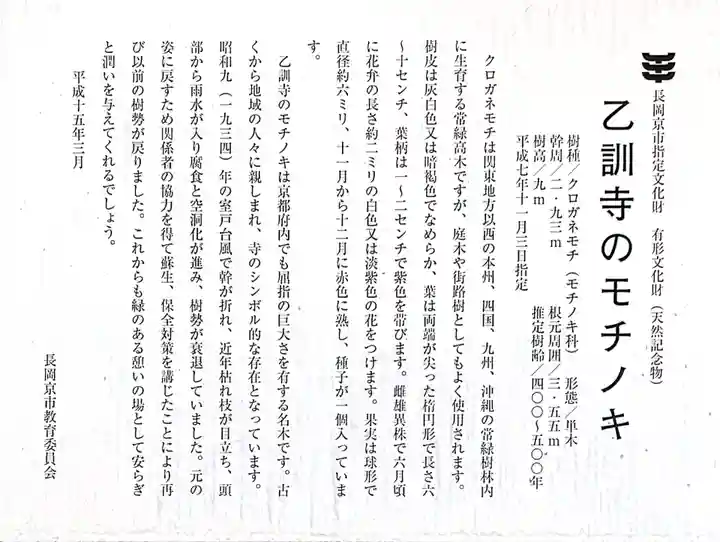 長岡京市指定文化財　有形文化財（天然記念物）
乙訓寺のモチノキ
樹種／クロガネモチ（モチノキ科）　形態／単木
幹周／二・九三ｍ　根元周囲／三・五五ｍ
樹高／九ｍ　推定樹齢／四〇〇〜五〇〇年
平成七年十一月三日指定
クロガネモチは関東地方以西の本州、四国、九州、沖縄の常緑樹林内
に生育する常緑高木ですが、庭木や街路樹としてもよく使用されます。
樹皮は灰白色又は暗褐色でなめらか、葉は両端が尖った楕円形で長さ六
〜十センチ、葉柄は一〜二センチで紫色を帯びます。雌雄異株で六月頃
に花弁の長さ約二ミリの白色又は淡紫色の花をつけます。果実は球形で
直径約六ミリ、十一月から十二月に赤色に熟し、種子が一個入っていま
す。
乙訓寺のモチノキは京都府内でも屈指の巨大さを有する名木です。古
くから地域の人々に親しまれ、寺のシンボル的な存在となっています。
昭和九（一九三四）年の室戸台風で幹が折れ、近年枯れ枝が目立ち、頭
部から雨水が入り腐食と空洞化が進み、樹勢が衰退していました。元の
姿に戻すため関係者の協力を得て蘇生、保全対策を講じたことにより再
び以前の樹勢が戻りました。これからも緑のある憩いの場として安らぎ
と潤いを与えてくれるでしょう。
平成十五年三月
長岡京市教育委員会